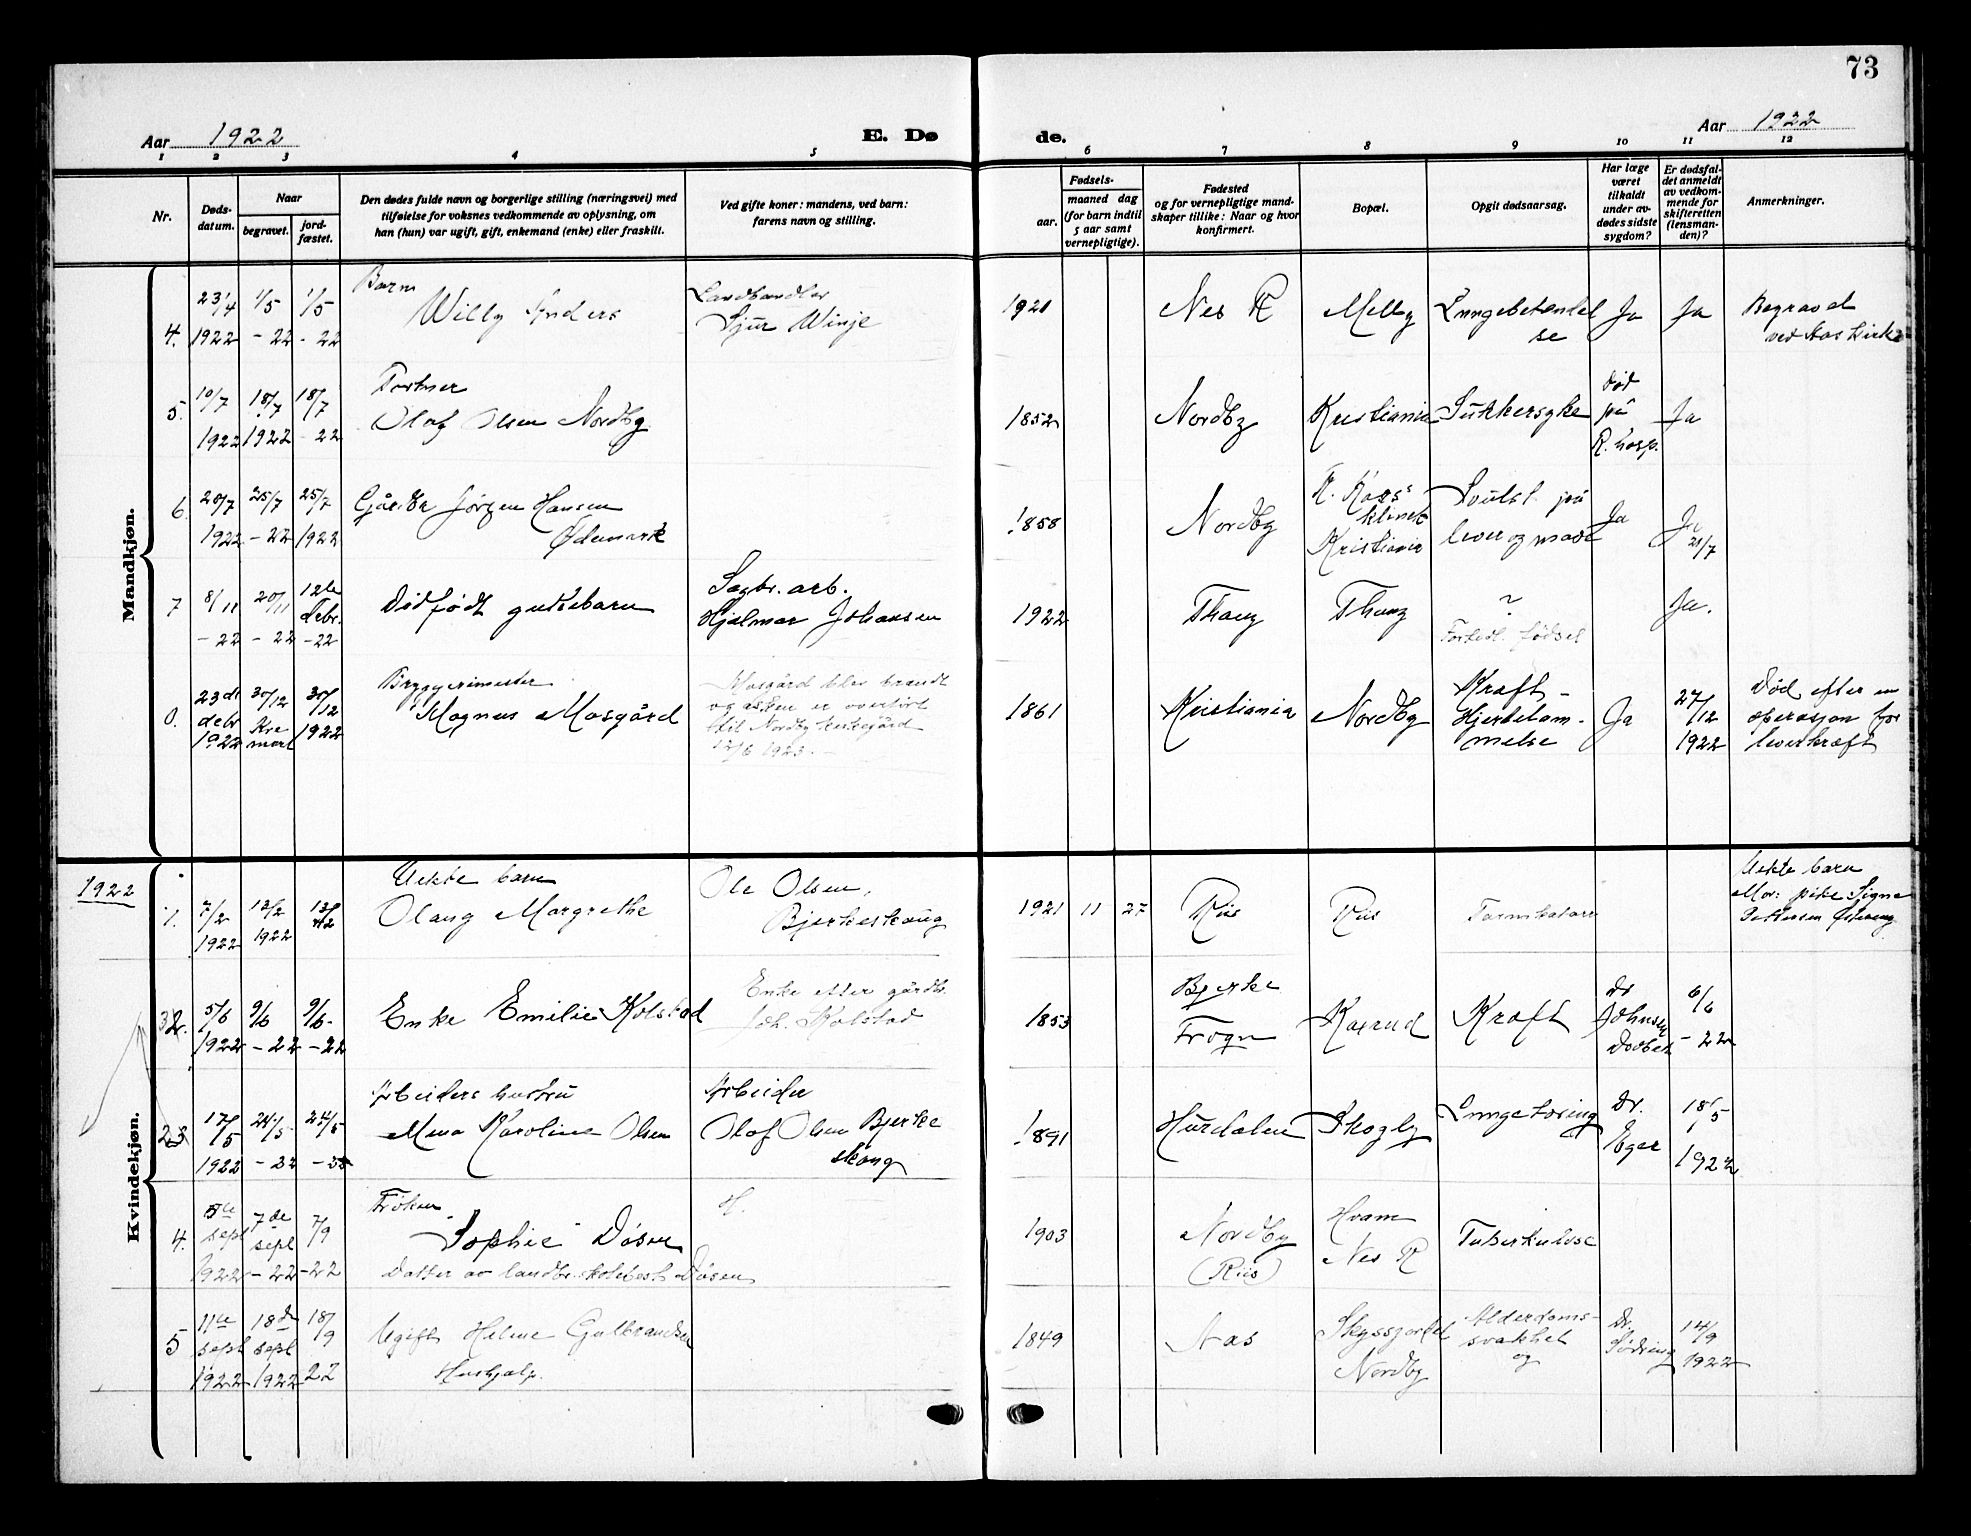 73
Aar 1922
E. Dø
de.
Aar 1922
1 2 3 4 5 6 7 8 9 10 11 12
Nr.
Døds-
datum.
Naar
begravet.
jord-
fæstet.
Den dødes fulde navn og borgerlige stilling (næringsvei) med
tilføielse for voksnes vedkommende av oplysning, om
han (hun) var ugift, gift, enkemand (enke) eller fraskilt.
Ved gifte koner: mandens, ved barn:
farens navn og stilling.
Fødsels-
aar.
maaned dag
(for barn indtil
5 aar samt
vernepligtige).
Fødested
og for vernepligtige mand-
skaper tillike: Naar og hvor
konfirmert.
Bopæl.
Opgit dødsaarsag.
Har læge
været
tilkaldt
under av-
dødes sidste
sygdom?
Er dødsfal-
det anmeldt
av vedkom-
mende for
skifteretten
(lensman-
den)?
Anmerkninger.
Mandkjøn.
4.
23/4
1922
1/5
- 22
1/5
- 22
Barn
Willy Anders
Landhandler
Sjur Winje
1921
Nes R
Melby
Lungebetendel
se
Ja
Ja
Begravet
ved Aas kirke
5.
10/7
1922
18/7
1922
18/7
- 22
Olaf Olsen Nordby
1852
Nordby
Kristiania
Sukkersyke
Død
på
R. hosp.
Ja
6.
20/7
1922
25/7
- 22
25/7
1922
Gårdbr Jørgen Hansen
Ødemark
1858
Nordby
klinik
Kristiania
Svulst på
lever og mave
Ja
Ja
21/7
7
8/11
- 22
20/11
- 22
12te
debr.
- 22
Dødfødt guttebarn
Sagbr. arb.
Hjalmar Johansen
1922
?
fødsel
Ja.
23de
debr
1922
30/12
Kre
mert
30/12
1922
Bryggerimester
Magnus Mosgård
Mosgård blev brændt
og asken er overført
til Nordby kirkegård
12/6 1923.
1861
Kristiania
Nordby
Kræft -
Hjertelam-
melse
Ja
27/12
1922
Død efter en
operasjon for
leverkræft
1922
Kvindekjøn.
1.
7/2
1922
12/2
1922
12/2
Uekte barn
Olaug Margrethe
Ole Olsen,
Bjerkeskaug
1921 11 27
Riis
Riis
Tarmkatarr
Uekte barn
Mor: pike Signe
2.
5/6
1922
9/6
- 22
9/6
- 22
Enke Emilie Kolstad
Enke efter gårdbr.
Joh. Kolstad
1853
Bjerke
Frogn
Kaxrud
Kræft
Dr
Johnsen
Drøbak
6/6
- 22
17/5
1922
24/5
- 22
24/5
Arbeiders hustru
Mina Karoline Olsen
Arbeider
Olaf Olsen Bjerke
skaug
1891
Hurdalen
Skogly
Lungetæring
Dr.
Eger
18/5
1922
4.
5te
sept
1922
7de
sept
- 22
7/9
- 22
Frøken
Sophie Døsen
Datter av landbr.skolebest. Døsen
H.
1903
Nordby
(Riis)
Hvam
Nes R
Tuberkulose
5
11te
sept
1922
18de
sept
1922
18/9
22
Ugift Helene Gulbrandsen
Hushjelp.
1849
Aas
Nordby
Alderdoms-
svakhet
og
Dr.
14/9
1922